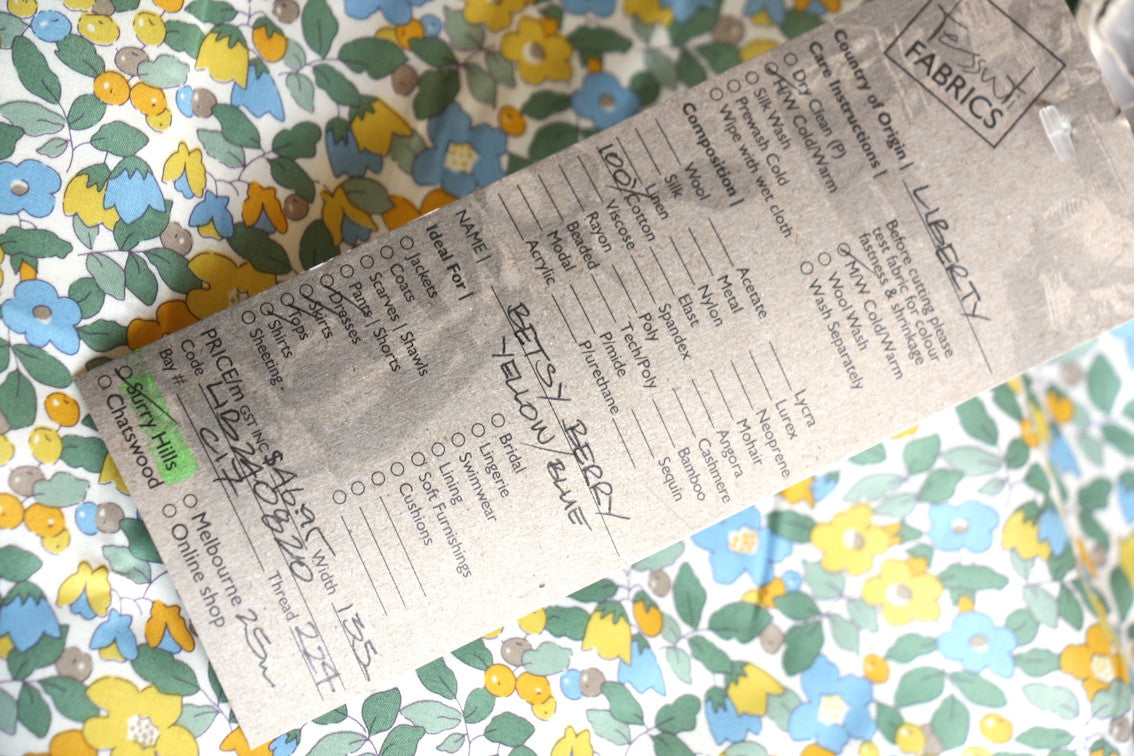 Tessuti
FABRICS
Country of Origin | LIBERTY
Care Instructions |
Before cutting please
test fabric for colour
fastness & shrinkage
Dry Clean (P)
H/W Cold/Warm
Silk Wash
Prewash Cold
Wipe with wet cloth
M/W Cold/Warm
Wool Wash
Wash Separately
Composition |
Wool
Silk
Linen
100% Cotton
Viscose
Rayon
Beaded
Modal
Acrylic
Acetate
Metal
Nylon
Elast
Spandex
Poly
Tech/Poly
P/mide
P/urethane
Lycra
Lurex
Neoprene
Mohair
Angora
Cashmere
Bamboo
Sequin
NAME | BETSY BERRY
YELLOW/BLUE
Ideal For |
Jackets
Coats
Scarves | Shawls
Pants | Shorts
Dresses
Skirts
Tops
Shirts
Sheeting
Bridal
Lingerie
Swimwear
Lining
Soft Furnishings
Cushions
PRICE/m GST INC $A61.95 Width 135
Code LIB2408320 Thread 224
Bay # C17
Surry Hills
Chatswood
Melbourne 25m
Online shop